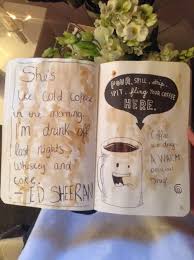 She's
like cold coffee
in the morning
I'm drunk off
last nights
Whiskey and
coke.
- ED SHEERAN
POUR, SPILL, drip,
SPIT, fling YOUR COFFEE
HERE.
Coffee
A WARM